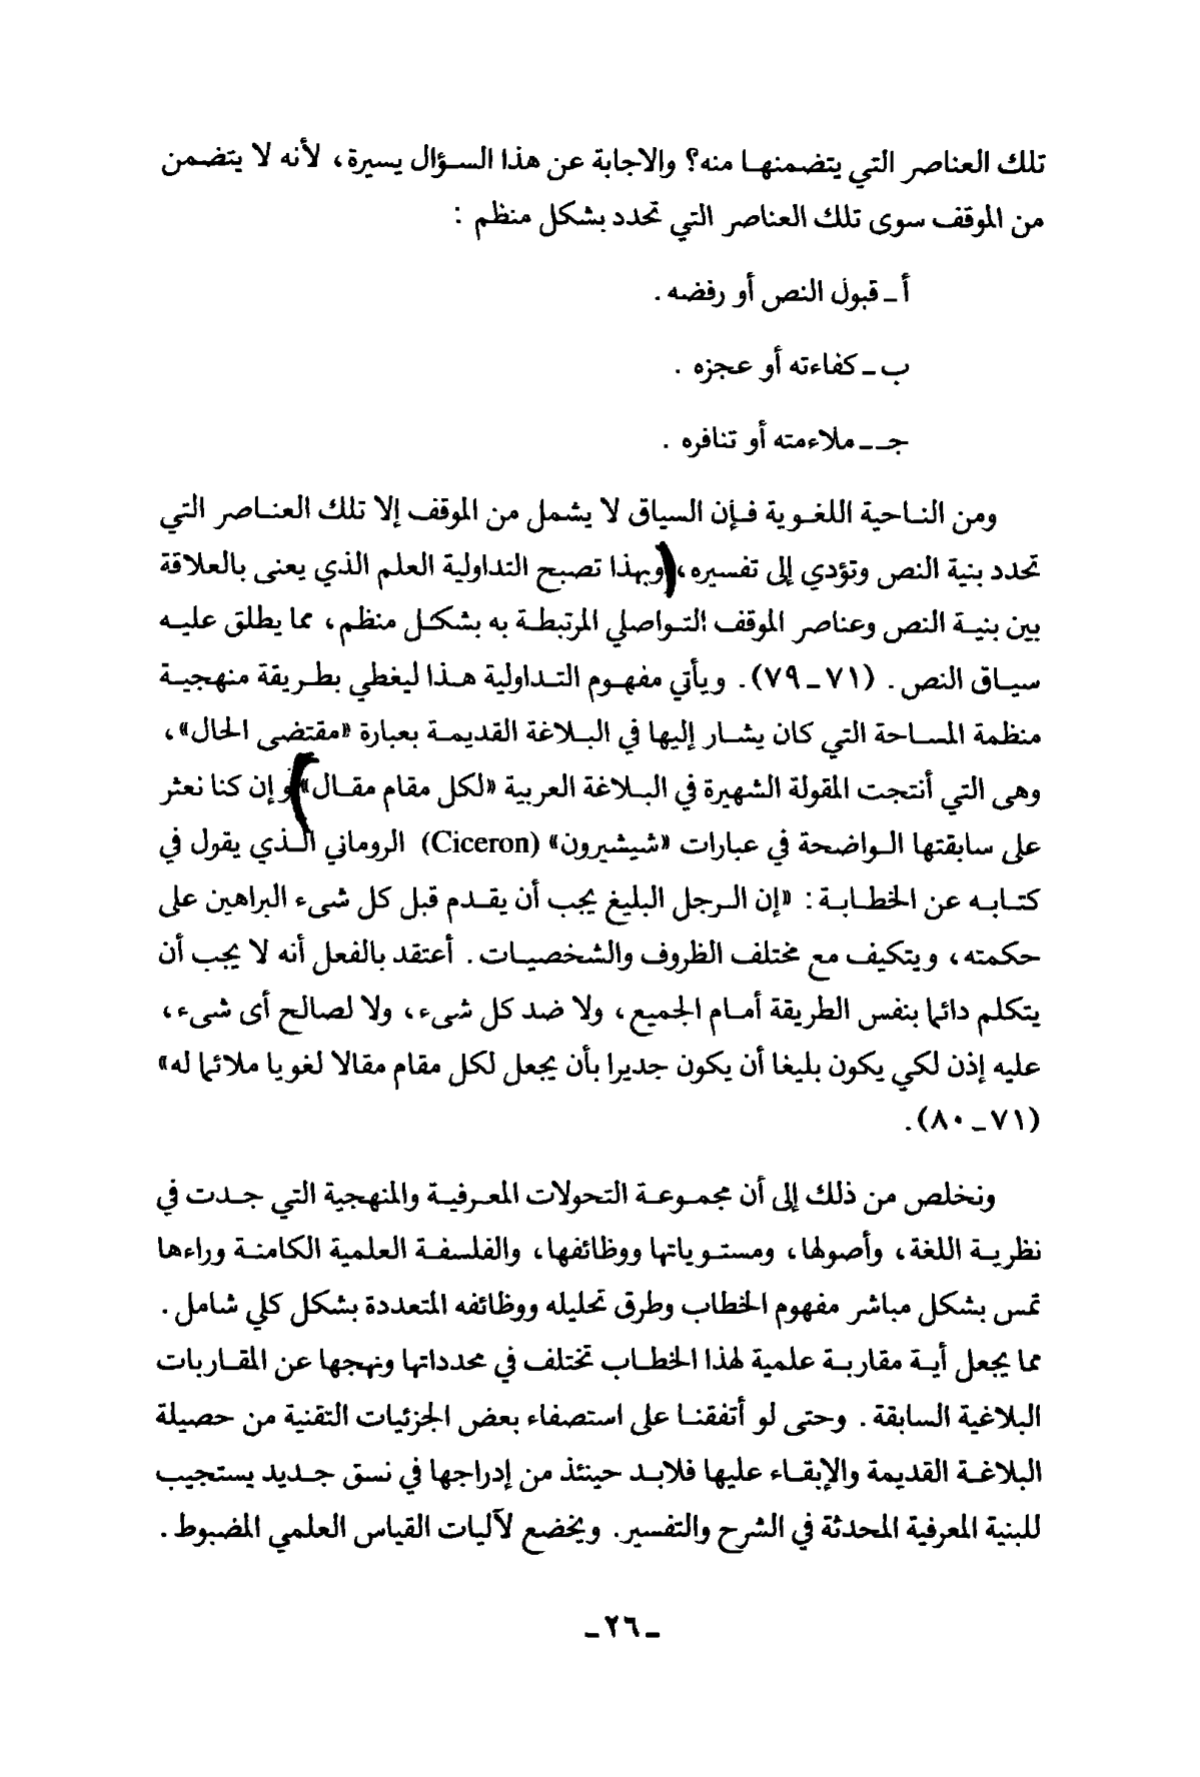 تلك العناصر التي يتضمنها منه؟ والاجابة عن هذا السؤال يسيرة، لأنه لا يتضمن
من الموقف سوى تلك العناصر التي تحدد بشكل منظم :
أ ـ قبول النص أو رفضه .
ب ـ كفاءته أو عجزه .
جـ ـ ملاءمته أو تنافره .
ومن الناحية اللغوية فإن السياق لا يشمل من الموقف إلا تلك العناصر التي
تحدد بنية النص وتؤدي إلى تفسيره، (وبهذا تصبح التداولية العلم الذي يعنى بالعلاقة
بين بنية النص وعناصر الموقف التواصلي المرتبطة به بشكل منظم، مما يطلق عليه
سياق النص . (٧١ ـ ٧٩). ويأتي مفهوم التداولية هذا ليغطي بطريقة منهجية
منظمة المساحة التي كان يشار إليها في البلاغة القديمة بعبارة «مقتضى الحال»،
وهى التي أنتجت المقولة الشهيرة في البلاغة العربية «لكل مقام مقال») وإن كنا نعثر
على سابقتها الواضحة في عبارات «شيشيرون» (Ciceron) الروماني الذي يقول في
كتابه عن الخطابة : «إن الرجل البليغ يجب أن يقدم قبل كل شىء البراهين على
حكمته، ويتكيف مع مختلف الظروف والشخصيات . أعتقد بالفعل أنه لا يجب أن
يتكلم دائما بنفس الطريقة أمام الجميع، ولا ضد كل شىء، ولا لصالح أى شىء،
عليه إذن لكي يكون بليغا أن يكون جديرا بأن يجعل لكل مقام مقالا لغويا ملائما له»
(٧١ ـ ٨٠).
ونخلص من ذلك إلى أن مجموعة التحولات المعرفية والمنهجية التي جدت في
نظرية اللغة، وأصولها، ومستوياتها ووظائفها، والفلسفة العلمية الكامنة وراءها
تمس بشكل مباشر مفهوم الخطاب وطرق تحليله ووظائفه المتعددة بشكل كلي شامل .
مما يجعل أية مقاربة علمية لهذا الخطاب تختلف في محدداتها ونهجها عن المقاربات
البلاغية السابقة . وحتى لو أتفقنا على استصفاء بعض الجزئيات التقنية من حصيلة
البلاغة القديمة والإبقاء عليها فلابد حينئذ من إدراجها في نسق جديد يستجيب
للبنية المعرفية المحدثة في الشرح والتفسير. ويخضع لآليات القياس العلمي المضبوط .
ـ ٢٦ ـ